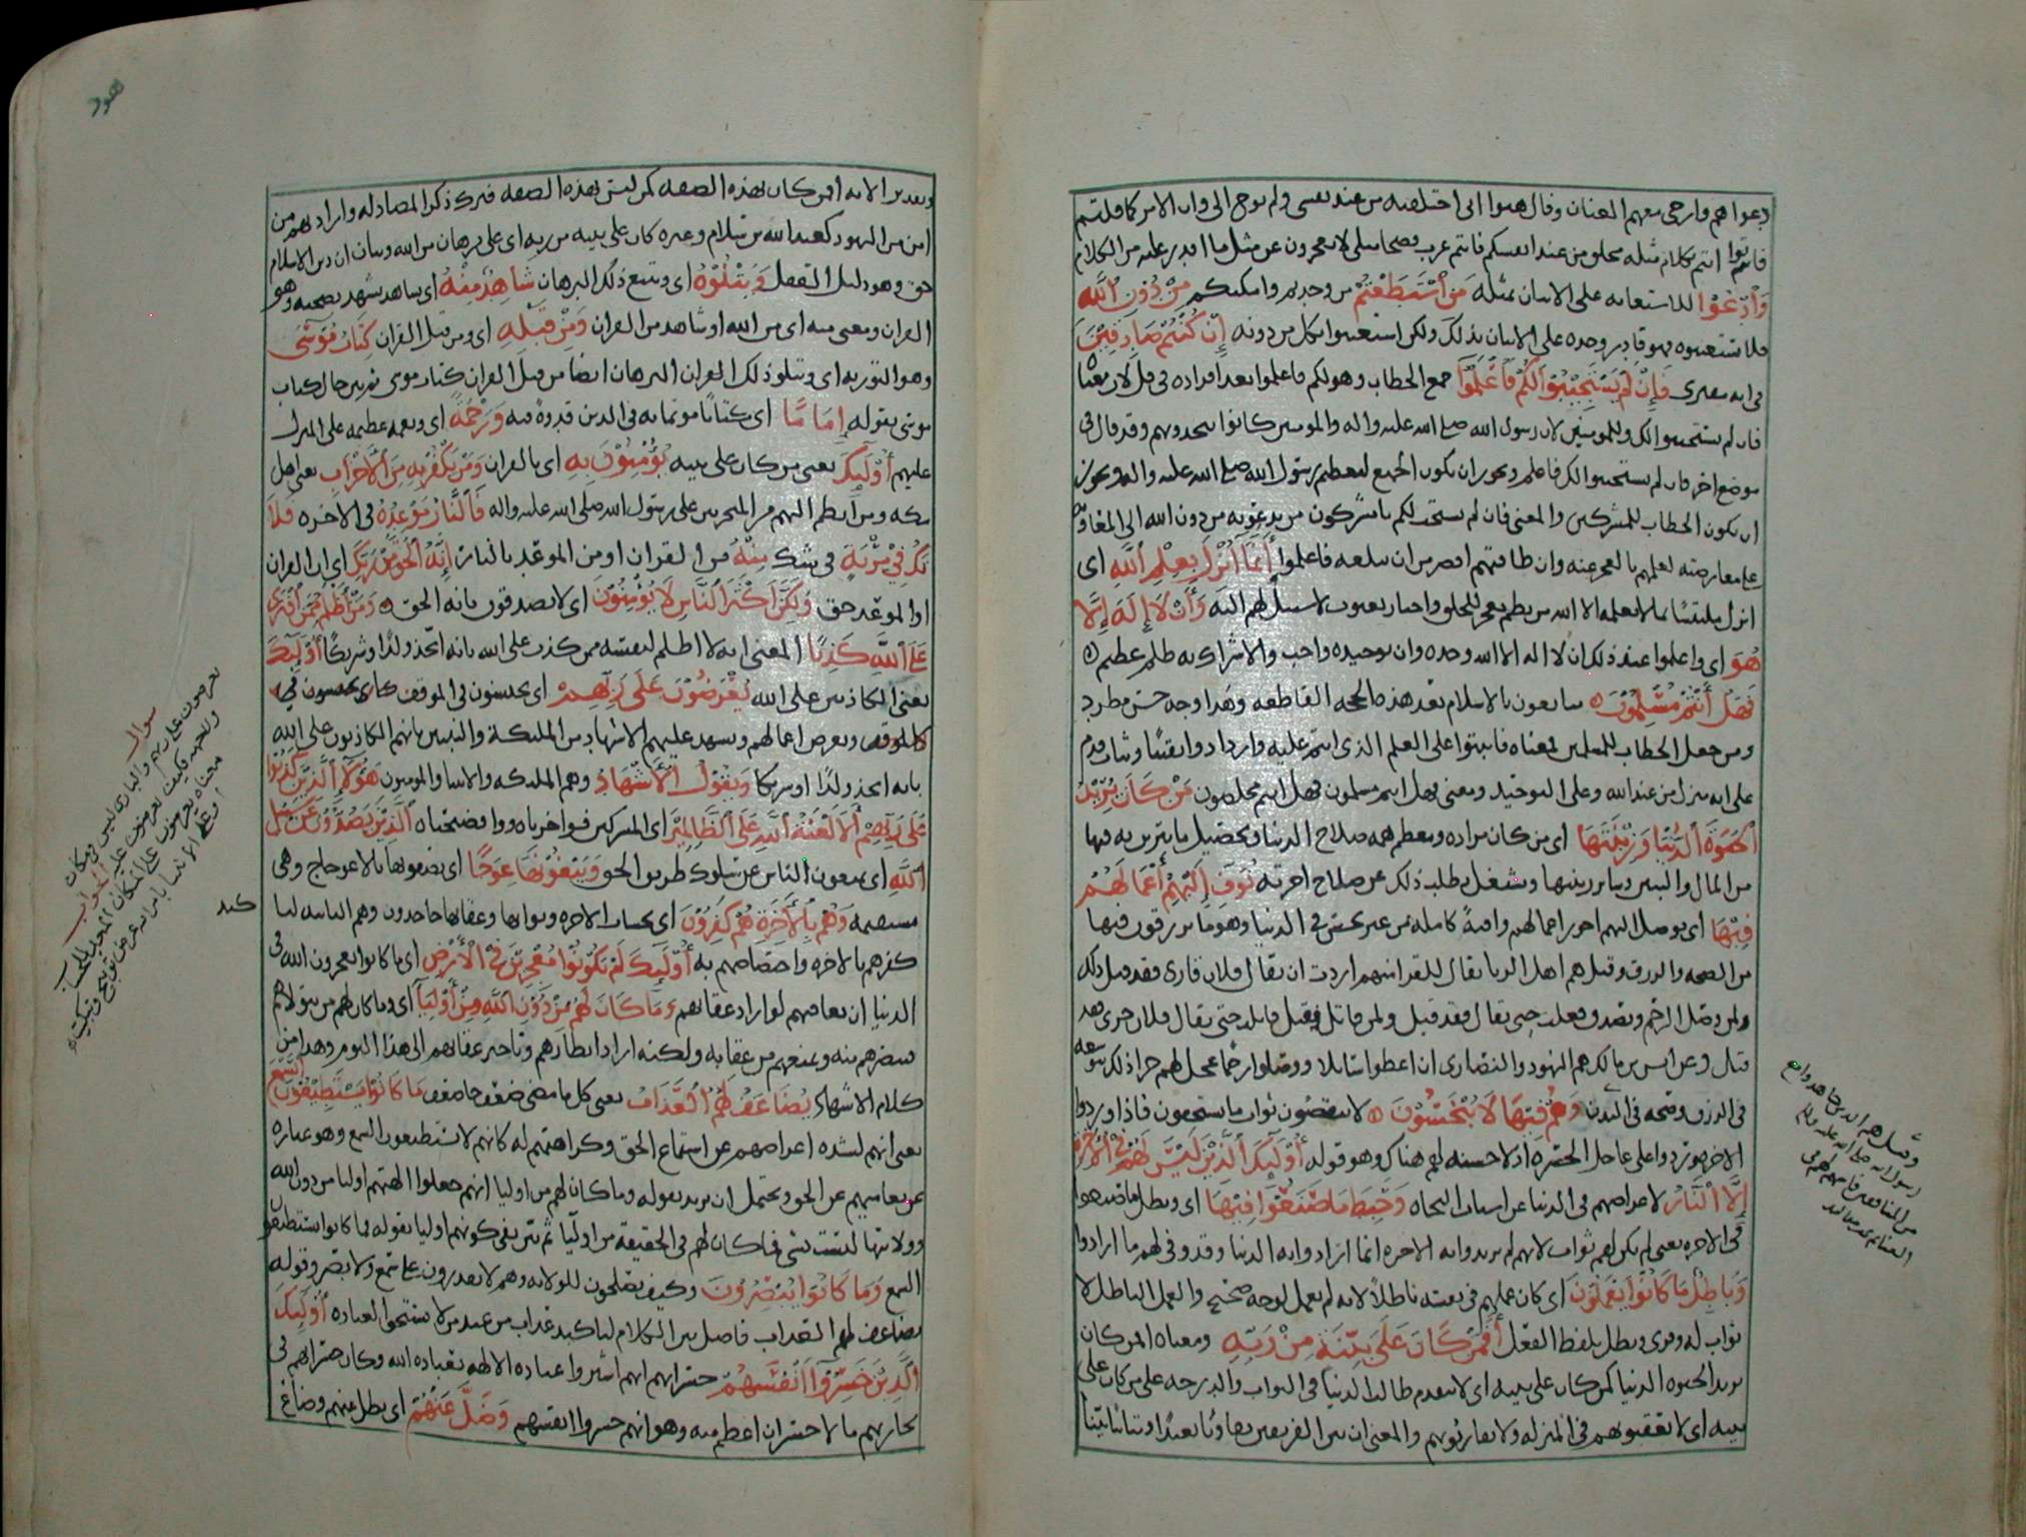 دعواهم وارخى معهم العنان وقال هبوا انى اختلقته من عند نفسى ولم يوح الى وان الامر كما قلتم
فاتوا انتم بكلام مثله مختلق من عند انفسكم فانتم عرب فصحا مثلى لا تعجزون عن مثل ما اقدر عليه من الكلام
وَٱدْعُوا للاستعانه على الاتيان بمثله مَنِ ٱسْتَطَعْتُمْ من وجدتم وامكنكم مِنْ دُونِ ٱللَّهِ
فلا تستعينوه فهو قادر وحده على الاتيان بذلك ولكن استعينوا بكل من دونه إِنْ كُنْتُمْ صَادِقِيْنَ
فى انه مفترى فَإِنْ لَمْ يَسْتَجِيْبُوْا لَكُمْ فَٱعْلَمُوْا جمع الخطاب وهو لكم فاعلموا بعد افراده فى قل لان معناه
فان لم يستجيبوا لك وللمومنين لان رسول الله صلى الله عليه واله والمومنين كانوا يتحدونهم وقد قال فى
موضع اخر فان لم يستجيبوا لك فاعلم ويجوز ان يكون الجمع لتعظيم رسول الله صلى الله عليه واله ويجوز
ان يكون الخطاب للمشركين والمعنى فان لم يستجب لكم يا مشركون من تدعونه من دون الله الى المعاونه
على معارضته لعلمهم بالعجز عنه وان طاقتهم اقصر من ان تبلغه فاعلموا أَنَّمَا أُنْزِلَ بِعِلْمِ ٱللَّهِ اى
انزل ملتبسا بما لا يعلمه الا الله من نظم معجز للخلق واخبار بغيوب لا سبيل لهم اليه وَأَنْ لَا إِلَهَ إِلَّا
هُوَ اى واعلموا عند ذلك ان لا اله الا الله وحده وان توحيده واجب والاشراك به ظلم عظيم
فَهَلْ أَنْتُمْ مُسْلِمُوْنَ مبايعون بالاسلام بعد هذه الحجه القاطعه وهذا وجه حسن مطرد
ومن جعل الخطاب للمسلمين فمعناه فاثبتوا على العلم الذى انتم عليه وازدادوا يقينا وثبات قدم
على انه منزل من عند الله وعلى التوحيد ومعنى فهل انتم مسلمون فهل انتم مخلصون مَنْ كَانَ يُرِيْدُ
ٱلْحَيَوةَ ٱلدُّنْيَا وَزِيْنَتَهَا اى من كان مراده ومعظم همه صلاح الدنيا وتحصيل ما يتزين به فيها
من المال والبنين وسائر زينتها ويشغل بطلب ذلك عن صلاح اخرته نُوَفِّ إِلَيْهِمْ أَعْمَالَهُمْ
فِيْهَا اى نوصل اليهم اجور اعمالهم وافيةً كاملة من غير بخس فى الدنيا وهو ما يرزقون فيها
من الصحه والرزق وقيل هم اهل الريا يقال للقرا منهم اردت ان يقال فلان قارى فقد قيل ذلك
ولمن وصل الرحم وتصدق فعلت حتى يقال فقد قيل ولمن قاتل فقتل قاتلت حتى يقال فلان جرى فقد
قيل وعن انس بن مالك هم اليهود والنصارى ان اعطوا سائلا او وصلوا رحما عجل لهم جزا ذلك بتوسعه
فى الرزق وصحه فى البدن وَهُمْ فِيْهَا لَا يُبْخَسُوْنَ لا ينقصون ثواب ما يستحقون فاذا وردوا
الاخره وردوا على عاجل الحسره اذ لا حسنه لهم هناك وهو قوله أُوْلَئِكَ ٱلَّذِيْنَ لَيْسَ لَهُمْ فِي ٱلْأَخِرَةِ
إِلَّا ٱلنَّارُ لاعراضهم فى الدنيا عن اسباب النجاه وَحَبِطَ مَا صَنَعُوْا فِيْهَا اى وبطل ما صنعوا
فى الاخره يعنى لم يكن لهم ثواب لانهم لم يريدوا به الاخره انما ارادوا به الدنيا وقد وفى لهم ما ارادوا
وَبَاطِلٌ مَا كَانُوْا يَعْمَلُوْنَ اى كان عملهم فى نفسه باطلاً لانه لم يعمل لوجه صحيح والعمل الباطل لا
ثواب له وقرى وبطل بلفظ الفعل أَفَمَنْ كَانَ عَلَى بَيِّنَةٍ مِنْ رَبِّهِ ومعناه امن كان
يريد الحيوه الدنيا كمن كان على بينه اى لا يقدم طالب الدنيا فى الثواب والدرجه على من كان على
بينه اى لا يعقبونهم فى المنزله ولا يقاربونهم والمعنى ان بين الفريقين تفاوتا بعيدا وتباينا بيّنا
وقيل هم الذين جاهدوا مع
رسول الله صلى الله عليه واله
من المنافقين فاسهم لهم فى
الغنائم
هود
وتقدير الايه افمن كان بهذه الصفه كمن ليس بهذه الصفه فترك ذكر المضاد له واراد بهم من
امن من اليهود كعبد الله بن سلام وغيره كان على بينه من ربه اى على برهان من الله وبيان ان دين الاسلام
حق وهو دليل العقل وَيَتْلُوْهُ اى ويتبع ذلك البرهان شَاهِدٌ مِنْهُ اى شاهد يشهد بصحته وهو
القران ومعنى منه اى من الله او شاهد من القران وَمِنْ قَبْلِهِ اى ومن قبل القران كِتَابُ مُوْسَى
وهو التوريه اى ويتلو ذلك البرهان ايضا من قبل القران كتاب موسى ثم بين حال كتاب
موسى بقوله إِمَامًا اى كتابًا موتما به فى الدين قدوةً فيه وَرَحْمَةً اى ونعمه عظيمه على المنزل
عليهم أُوْلَئِكَ يعنى من كان على بينه يُؤْمِنُوْنَ بِهِ اى بالقران وَمَنْ يَكْفُرْ بِهِ مِنَ ٱلْأَحْزَابِ يعنى اهل
مكه ومن انضم اليهم من المتحزبين على رسول الله صلى الله عليه واله فَٱلنَّارُ مَوْعِدُهُ فى الاخره فَلَا
تَكُ فِيْ مِرْيَةٍ فى شك مِنْهُ من القران او من الموعد بالنار إِنَّهُ ٱلْحَقُّ مِنْ رَبِّكَ اى ان القران
او الموعد حق وَلَكِنَّ أَكْثَرَ ٱلنَّاسِ لَا يُؤْمِنُوْنَ اى لا يصدقون بانه الحق وَمَنْ أَظْلَمُ مِمَّنِ ٱفْتَرَى
عَلَى ٱللَّهِ كَذِبًا المعنى انه لا اظلم لنفسه ممن كذب على الله بانه اتخذ ولدًا وشريكًا أُوْلَئِكَ
يعنى الكاذبين على الله يُعْرَضُوْنَ عَلَى رَبِّهِمْ اى يحبسون فى الموقف
وتعرض اعمالهم ويشهد عليهم الاشهاد من الملئكة والنبيين بانهم الكاذبون على الله
بانه اتخذ ولدًا او شريكا وَيَقُوْلُ ٱلْأَشْهَادُ وهم الملئكه والانبيا والمومنون هَؤُلَاءِ ٱلَّذِيْنَ كَذَبُوْا
عَلَى رَبِّهِمْ أَلَا لَعْنَةُ ٱللَّهِ عَلَى ٱلظَّالِمِيْنَ اى المشركين فواخزياه ووافضيحتاه ٱلَّذِيْنَ يَصُدُّوْنَ عَنْ سَبِيْلِ
ٱللَّهِ اى يمنعون الناس عن سلوك طريق الحق وَيَبْغُوْنَهَا عِوَجًا اى يصفونها بالاعوجاج وهى
مستقيمه وَهُمْ بِٱلْأَخِرَةِ هُمْ كَفِرُوْنَ اى بحساب الاخره وثوابها وعقابها جاحدون وهم الثانيه لتاكيد
كفرهم بالاخره واختصاصهم به أُوْلَئِكَ لَمْ يَكُوْنُوْا مُعْجِزِيْنَ فِي ٱلْأَرْضِ اى ما كانوا يعجزون الله فى
الدنيا ان يعاقبهم لو اراد عقابهم وَمَا كَانَ لَهُمْ مِنْ دُوْنِ ٱللَّهِ مِنْ أَوْلِيَاءَ اى وما كان لهم من يتولاهم
فينصرهم منه ويمنعهم من عقابه ولكنه اراد انظارهم وتاخير عقابهم الى هذا اليوم وهذا من
كلام الاشهاد يُضَاعَفُ لَهُمُ ٱلْعَذَابُ يعنى كل ما مضى ضعف جا ضعف مَا كَانُوْا يَسْتَطِيْعُوْنَ ٱلسَّمْعَ
يعنى انهم لشده اعراضهم عن استماع الحق وكراهتهم له كانهم لا يستطيعون السمع وهو عباره
عن تعاميهم عن الحق ويحتمل ان يريد بقوله وما كان لهم من اوليا انهم جعلوا الهتهم اوليا من دون الله
وولايتها ليست بشى فما كان لهم فى الحقيقه من اوليا ثم بين نفى كونهم اوليا بقوله ما كانوا يستطيعون
السمع وَمَا كَانُوْا يُبْصِرُوْنَ وكيف يصلحون للولايه وهم لا يقدرون على سمع ولا بصر وقوله
يضاعف لهم العذاب فاصل بين الكلام لتاكيد عذاب من عبد من لا يستحق العباده أُوْلَئِكَ
ٱلَّذِيْنَ خَسِرُوْا أَنْفُسَهُمْ خسرانهم انهم اشتروا عباده الالهه بعباده الله وكان خسرانهم فى
تجارتهم ما لا خسران اعظم منه وهو انهم خسروا انفسهم وَضَلَّ عَنْهُمْ اى بطل عنهم وضاع
سوال
يعرضون على ربهم والبارى ليس فى مكان
الجواب